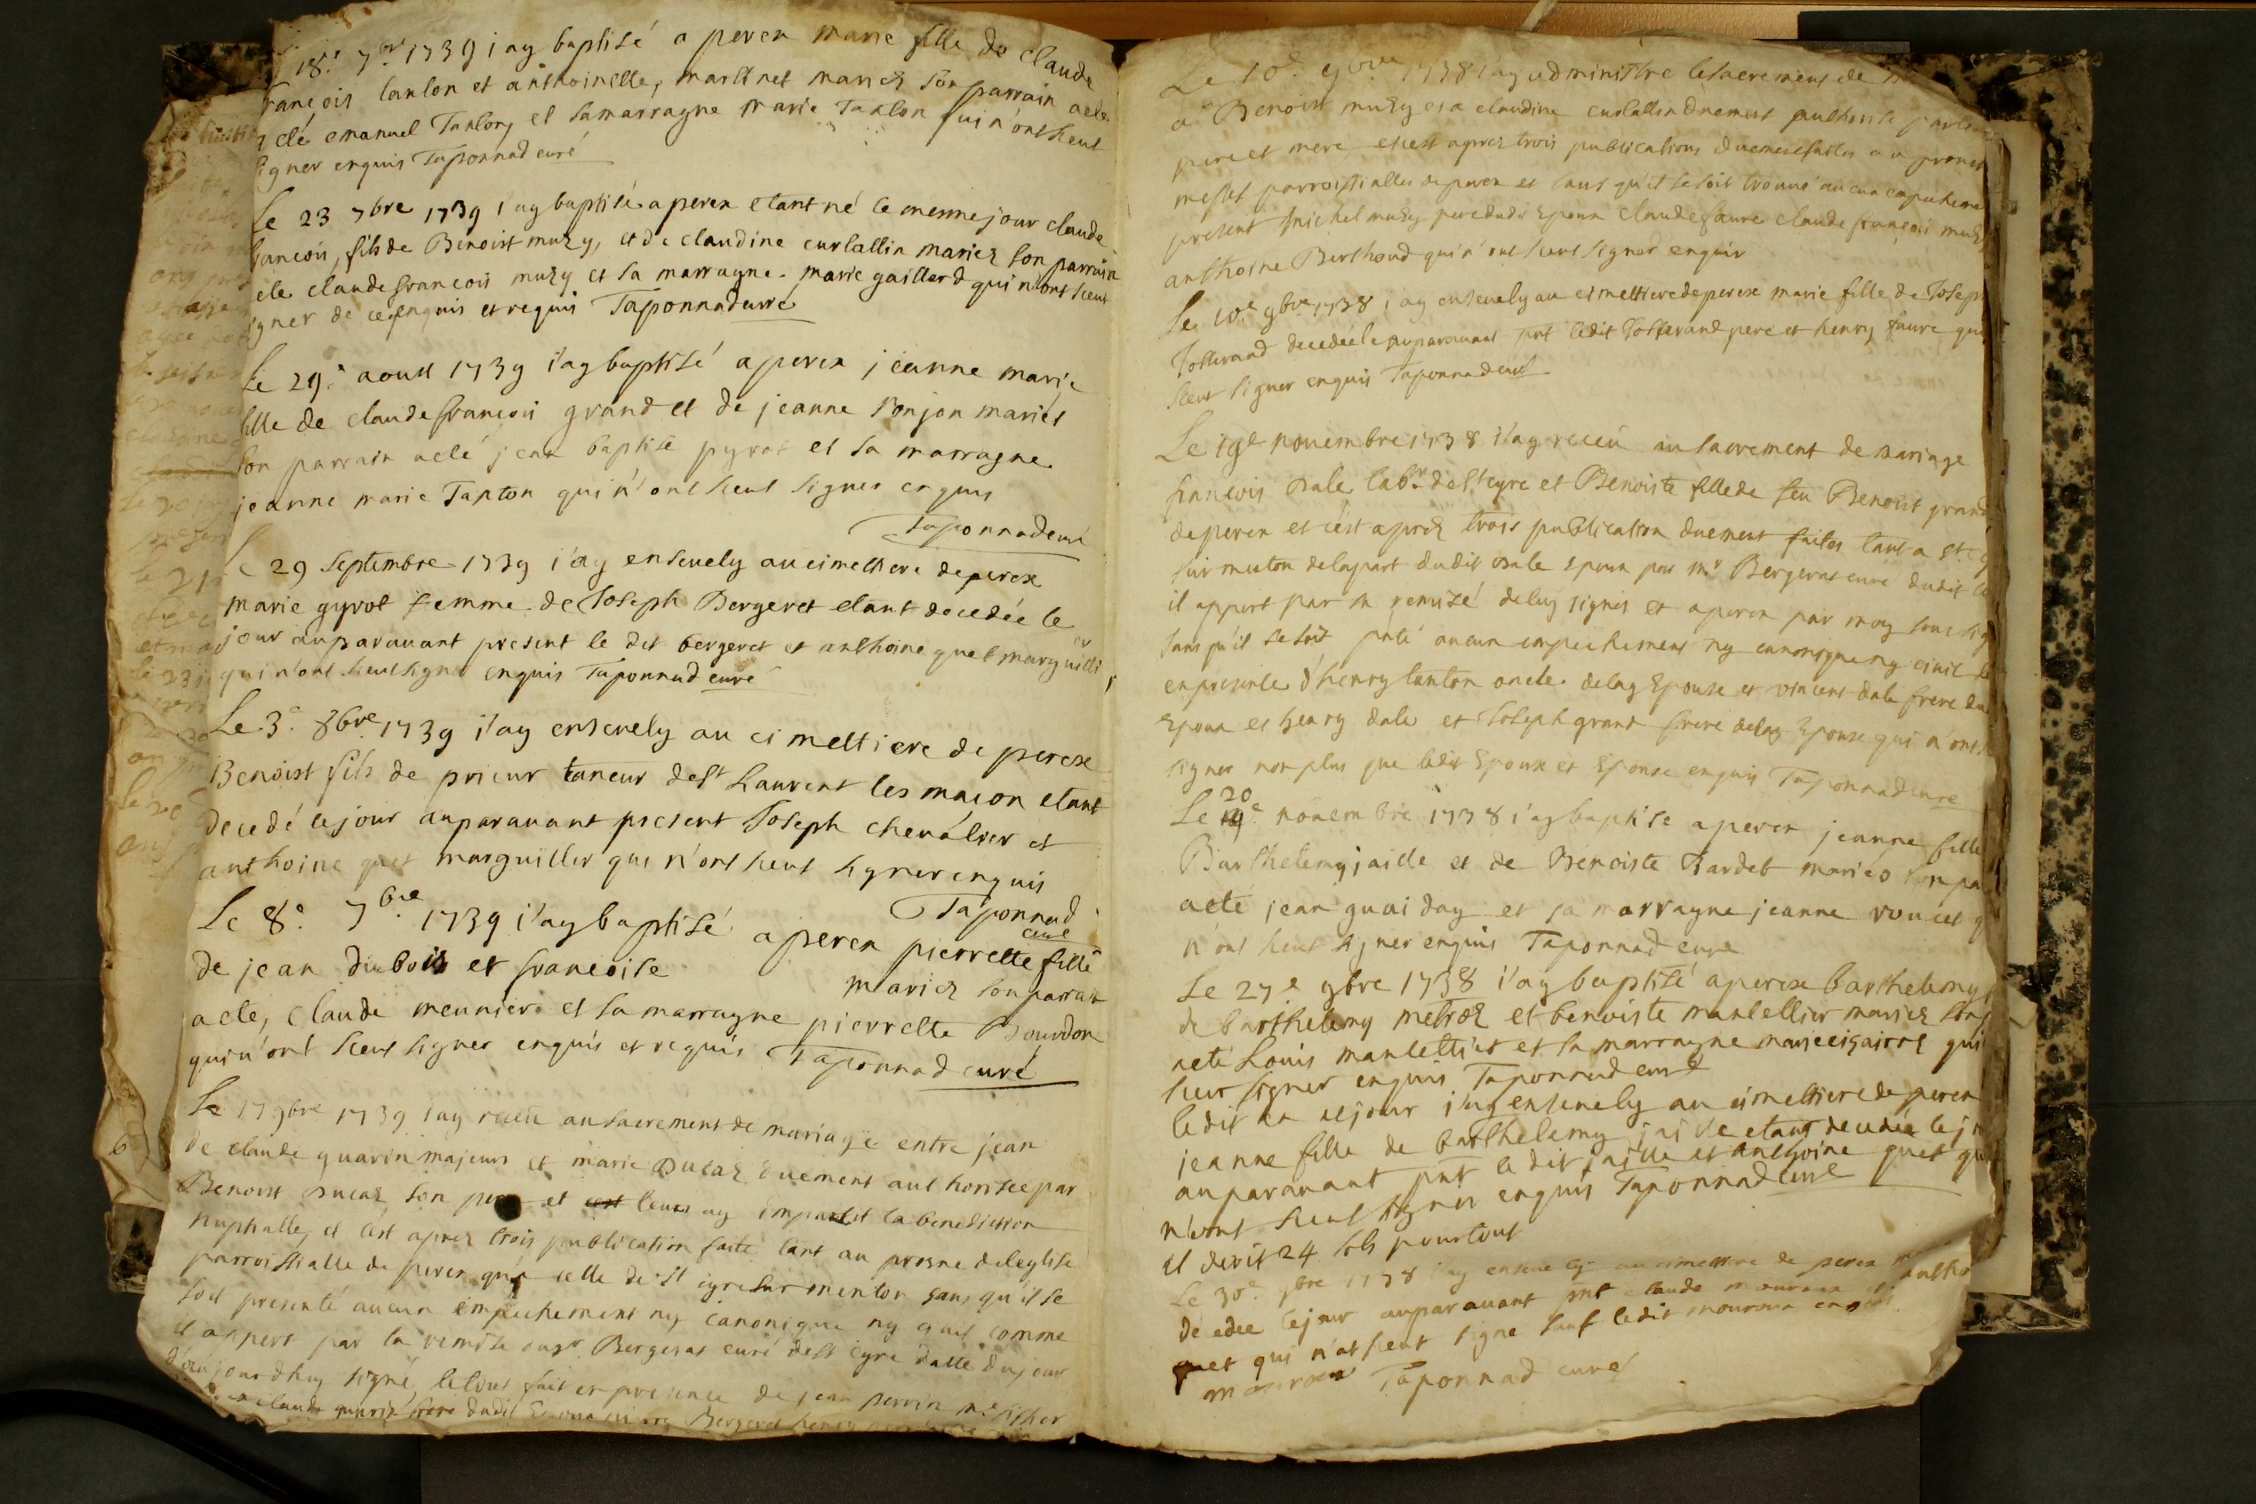 18.e 7.bre 1739 i'ay baptisé a perex marie fille de claude
françois tanton et anthoinette, martinet mariez son parrain acte
acté emanuel Tanton, et sa marragne marie Tanton qui n'ont sceut
signer enquis Taponnad curé
Le 23 7bre 1739 i'ay baptisé a perex etant né le mesme jour claude
francois, fils de Benoist muzy, et de claudine curtallin mariez son parrain
ete claude francois muzy et sa marragne marie gaillard qui n'ont sceut
signer de ce enquis et requis Taponnad curé
Le 29.e aoust 1739 i'ay baptisé a perex jeanne marie
fille de claude francois grand et de jeanne Bonjon mariés
son parrain acté jean baptiste pyrot et sa marragne
jeanne marie Tanton qui n'ont sceut signer enquis
Taponnad curé
Le 29 septembre 1739 i'ay ensevely au cimettiere de perex
marie gyrot femme de Joseph Bergeret etant decedée le
jour auparavant present le dit bergeret et anthoine guet marguillier
qui n'ont sceut signer enquis Taponnad curé
Le 3.e 8bre 1739 i'ay ensevely au cimettiere de perex
Benoist fils de prieur taneur de st Laurent les macon etant
decedé le jour auparavant present Joseph chevalier et
anthoine guet marguillier qui n'ont sceut signer enquis
Taponnad
curé
Le 8.e 7bre 1739 i'ay baptisé a perex pierrette fille
de jean dubois et francoise mariez son parrain
acte, claude meunier et sa marragne pierrette Bourdon
qui n'ont sceut signer enquis et requis Taponnad curé
Le 17 9bre 1739 i'ay receu au sacrement de mariage entre jean
de claude guarin majeurs et marie Ducaz duement authorisée par
Benoist Ducaz son pere et leurs ay impartit la benediction
nuptialle, et c'est aprez trois publication faite tant au prosne de l'eglise
parroissialle de perex que celle de st cyre sur menton sans qu'il se
soit presenté aucun empechement ny canonique ny civil comme
il appert par la remise du sr Bergeras curé de st cyre datté du jour
d'aujourdhuy signé, le tout fait en presence de jean perrin
claude guarin frere dudit Epoux Bergeret henry
Le 10.e 9bre 1738 i'ay administre le sacrement de
a Benoist muzy et a claudine curtallin duement authorisé par leur
pere et mere, et c'est aprez trois publications duement faites au prosne
messes parroissialles de perex et sans qu'il se soit trouvé aucun empechement
present michel muzy pere dudit Epoux claude faure claude françois muzy
anthoine Berthoud qui n'ont sceut signer enquis
Le 10.e 9bre 1738 i'ay ensevely au cimettiere de perex marie fille de Joseph
Josserand decedée le auparavant pnt ledit Josserand pere et henry faure qui
sceut signer enquis Taponnad curé
Le 19e novembre 1738 i'ay receu au sacrement de mariage
francois dale labr. de st cyre et Benoiste fille de feu Benoist grand
de perex et c'est aprez trois publication duement faites tant a st cy
sur menton de la part dudit dale Epoux par mr Bergeras curé dudit
il appert par sa remise de luy signés et a perex par moy sous sig
sans qu'il se soit pnté aucun empechement ny canonique ny civil
en presence d'henry tanton oncle de lay Epouse et vincent dale frere du
Epoux et henry dale et Joseph grant frere de lay Epouse qui n'ont
signer non plus que ledit Epoux et Epouse enquis Taponnad curé
20
Le 19.e novembre 1738 i'ay baptisé a perex jeanne fille
Barthelemy jaille et de Benoiste Bardet mariés son pa
acté jean guai day et sa marragne jeanne voucet q
n'ont sceut signer enquis Taponnad curé
Le 27e 9bre 1738 i'ay baptisé a perex barthelemy
de barthelemy metroz et benoiste mantellier mariez son
acté Louis mantellier et sa marragne marie cigairre qui
sceut signer enquis Taponnad curé
ledit an et jour i'ay ensevely au cimettiere de perex
jeanne fille de barthelemy jaille etant decedée le j
auparavant pnt le dit jaille et anthoine guet qui
n'ont sceut signer enquis Taponnad curé
et devit 24 sols pour tout
Le 30.e 9bre 1738 i'ay ensevely au cimettiere de perex
decedee le jour auparavant pnt claude mouroux et antho
guet qui n'at sceut signe sauf ledit mouroux enquis
mouroux Taponnad curé